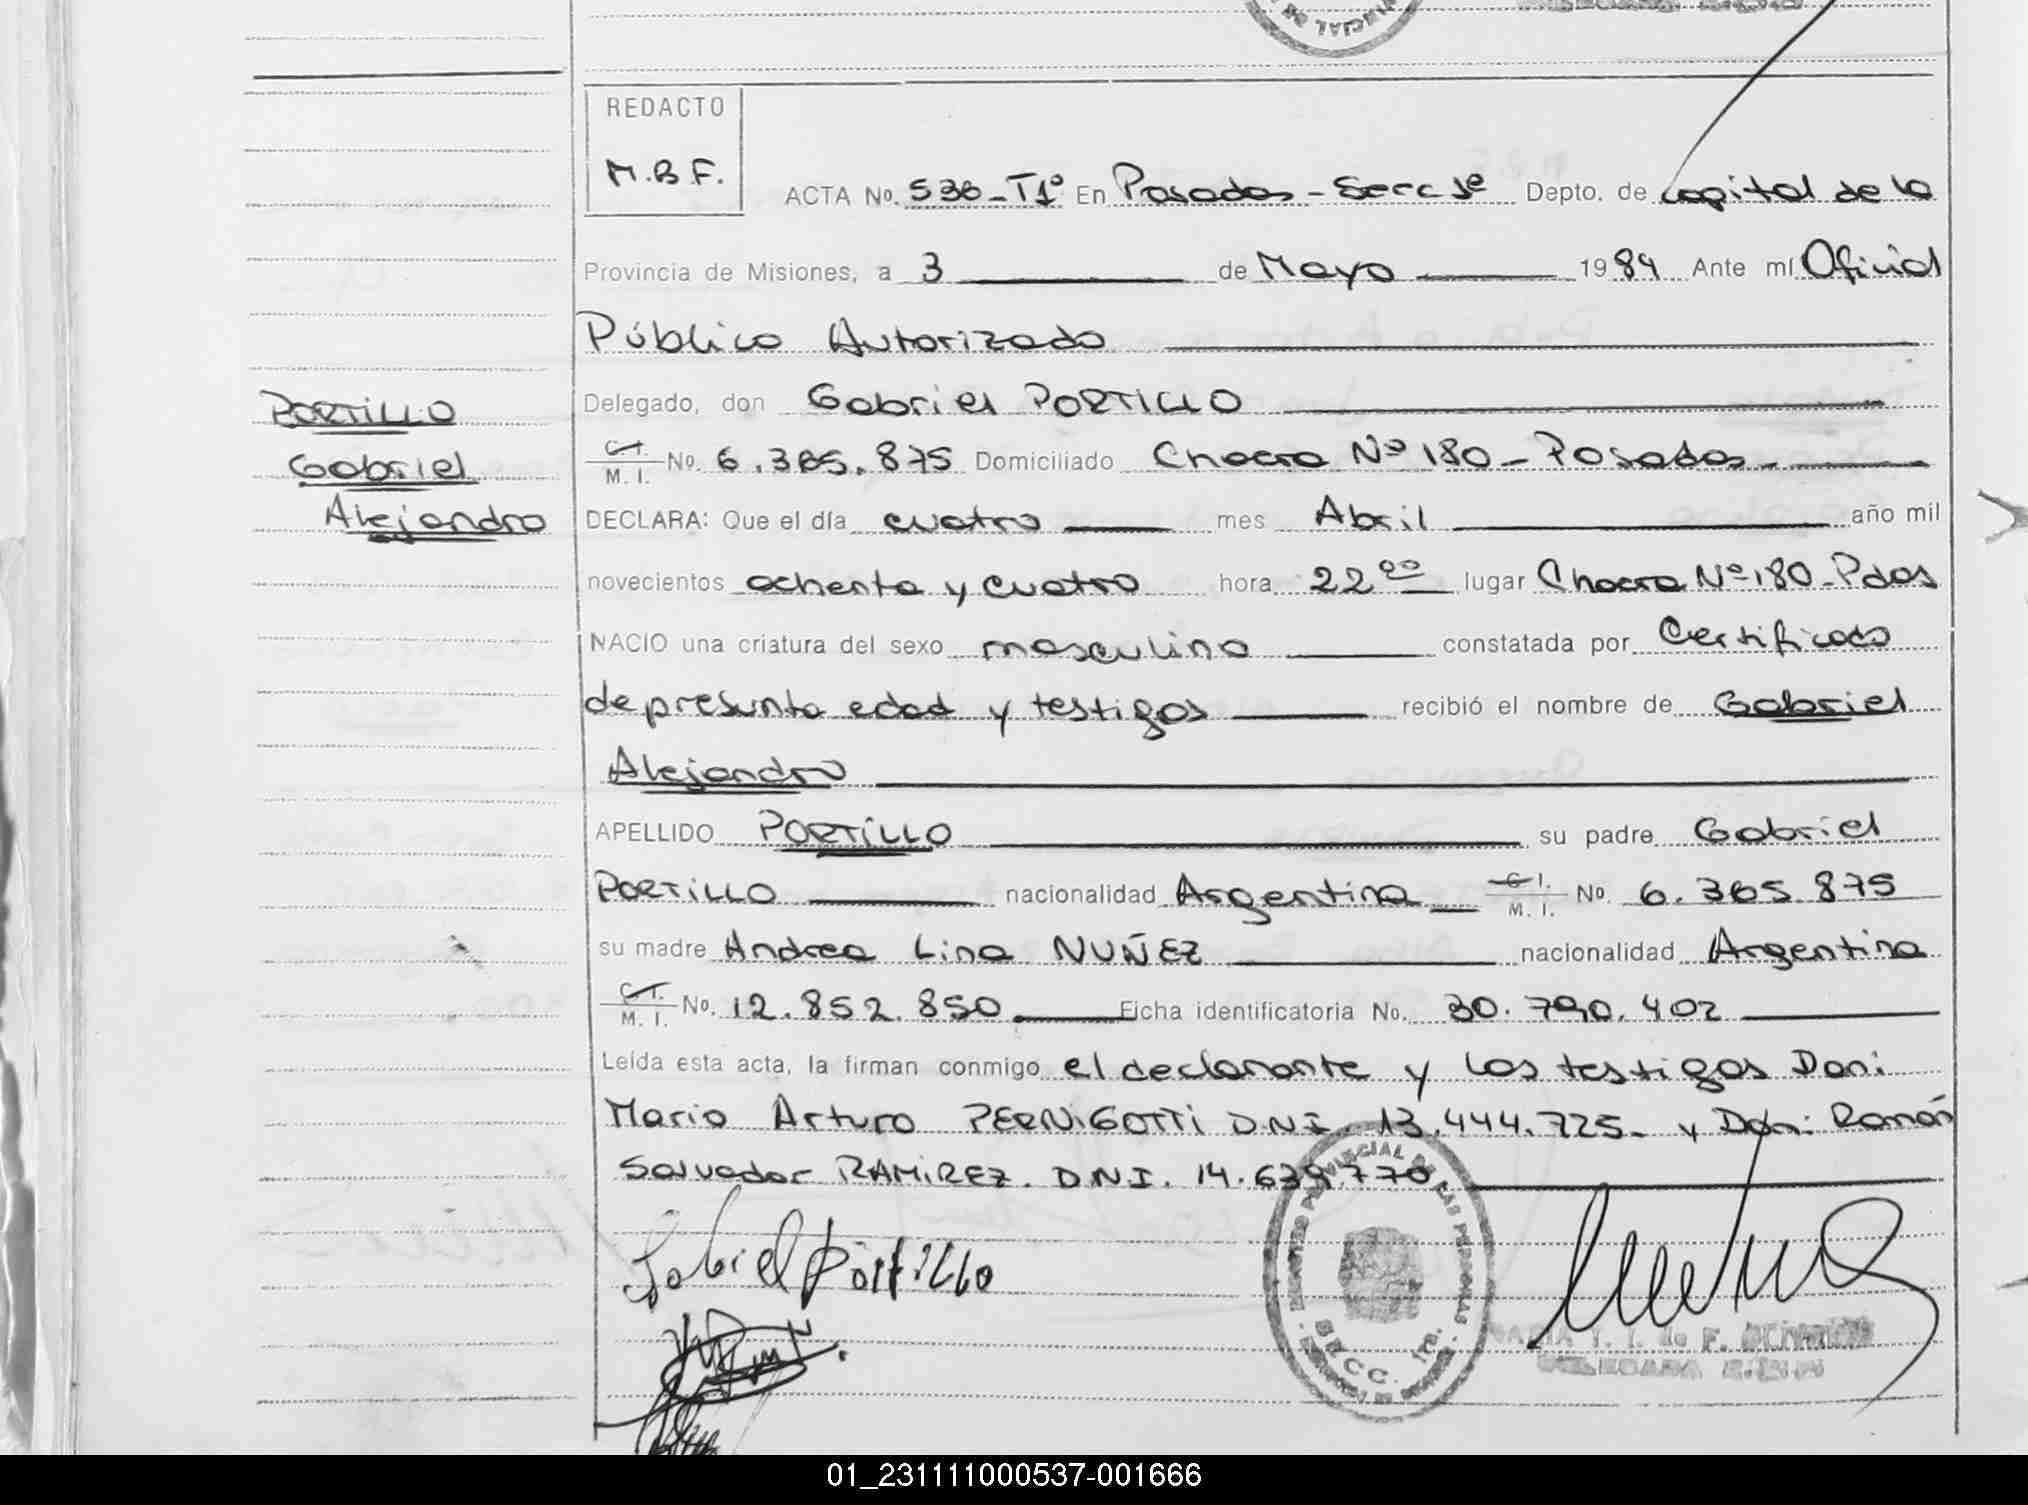 REDACTO
M.B.F.
ACTA No. 536-T1º En Posadas - Secc 1ª Depto. de Capital de la
Provincia de Misiones, a 3 de Mayo 1984 Ante mí Oficial
Público Autorizado
PORTILLO
Gabriel
Alejandro
Delegado, don Gabriel PORTILLO
C.I. M. I. No. 6.365.875 Domiciliado Chacra Nº 180 - Posadas -
DECLARA: Que el día cuatro mes Abril año mil
novecientos ochenta y cuatro hora 22 00 lugar Chacra Nº 180 - Pdas
NACIO una criatura del sexo masculino constatada por Certificado
de presunta edad y testigos recibió el nombre de Gabriel
Alejandro
APELLIDO PORTILLO su padre Gabriel
PORTILLO nacionalidad Argentina C.I. M. I. No. 6.365.875
su madre Andrea Lina NUÑEZ nacionalidad Argentina
C.I. M. I. No. 12.852.850 Ficha identificatoria No. 30.790.402
Leída esta acta, la firman conmigo el declarante y los testigos Don:
Mario Arturo PERNIGOTTI D.N.I. 13.444.725- y Don: Ramón
Salvador RAMIREZ. D.N.I. 14.639.770.
Gabriel Portillo
PROVINCIAL DE LAS PERSONAS
SECC. 1ra.
MARIA T. I. de F.
DELEGADA
01_231111000537-001666